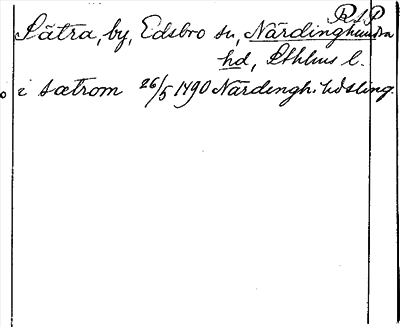 RAP
Sätra, by, Edsbro sn, Närdinghundra
hd, Sthlms l.
i sætrom 26/5 1490 Närdingh. hdsting.